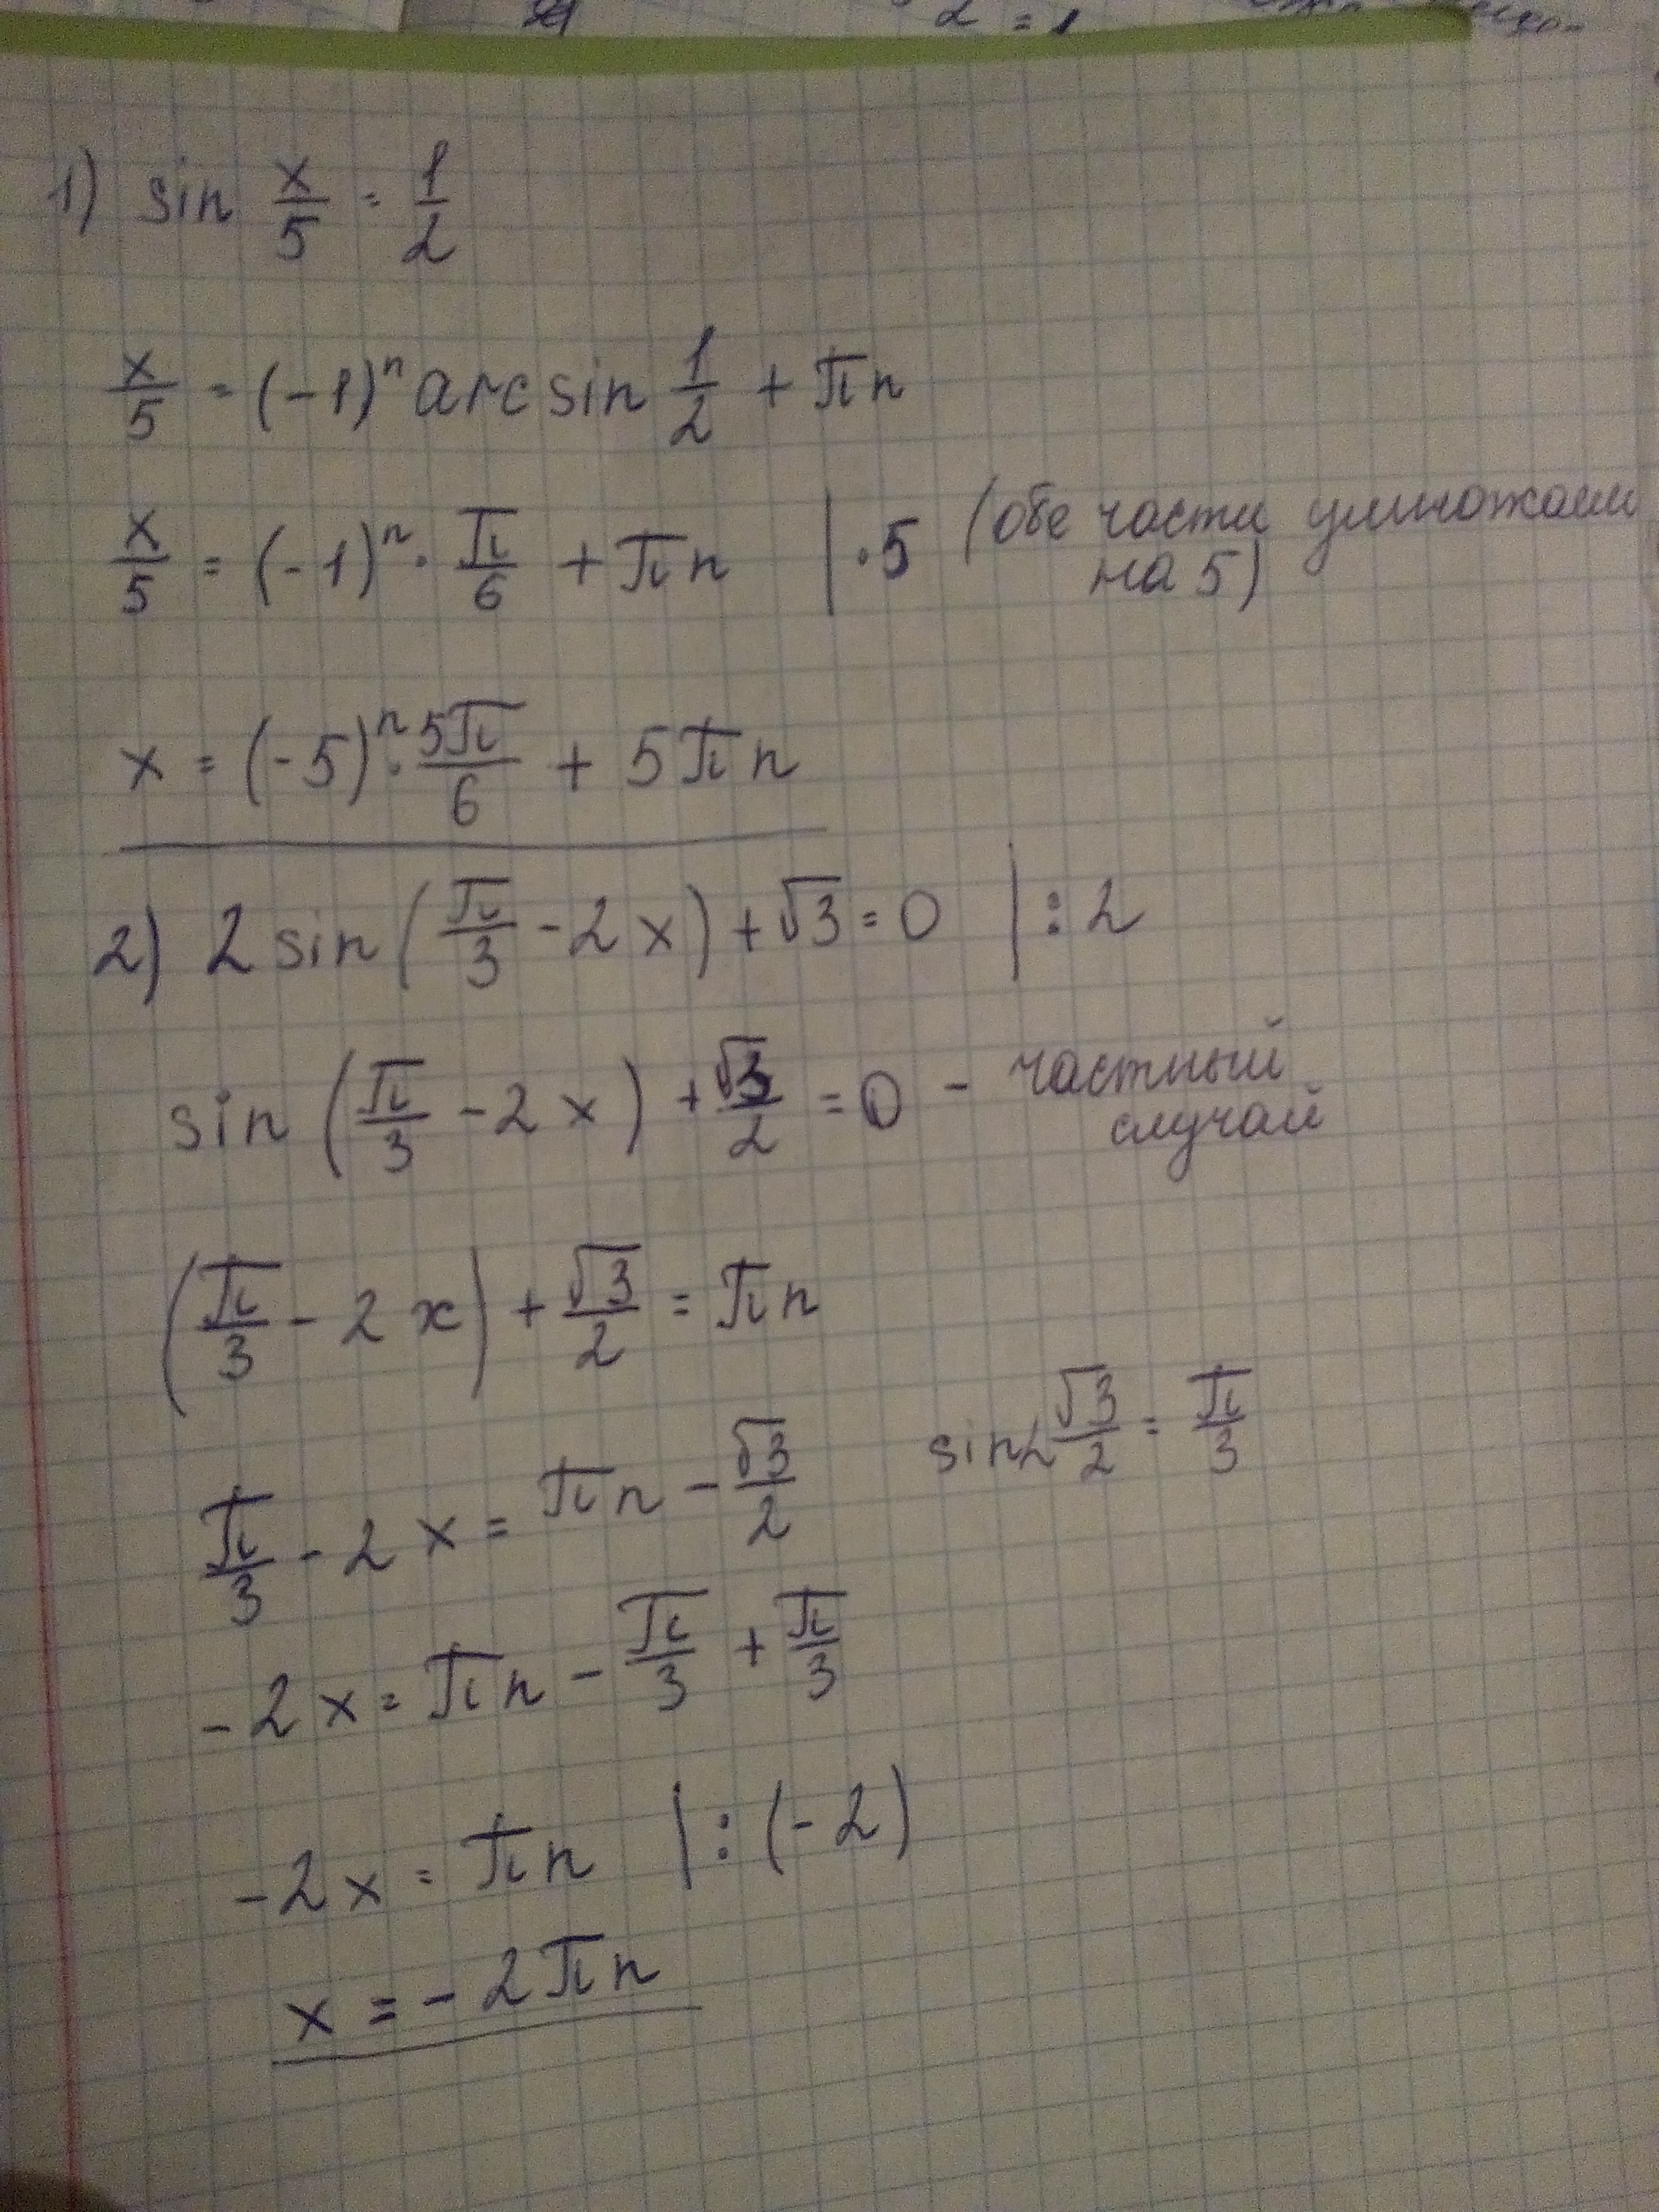 2 = 1
1) sin x/5 = 1/2
x/5 = (-1)^n arcsin 1/2 + πn
x/5 = (-1)^n · π/6 + πn | ·5 (обе части умножаем
на 5)
x = (-5)^n · 5π/6 + 5πn
2) 2 sin (π/3 - 2x) + √3 = 0 | : 2
sin (π/3 - 2x) + √3/2 = 0 - частный
случай
(π/3 - 2x) + √3/2 = πn
π/3 - 2x = πn - √3/2 sin α √3/2 = π/3
-2x = πn - π/3 + π/3
-2x = πn | : (-2)
x = -2πn